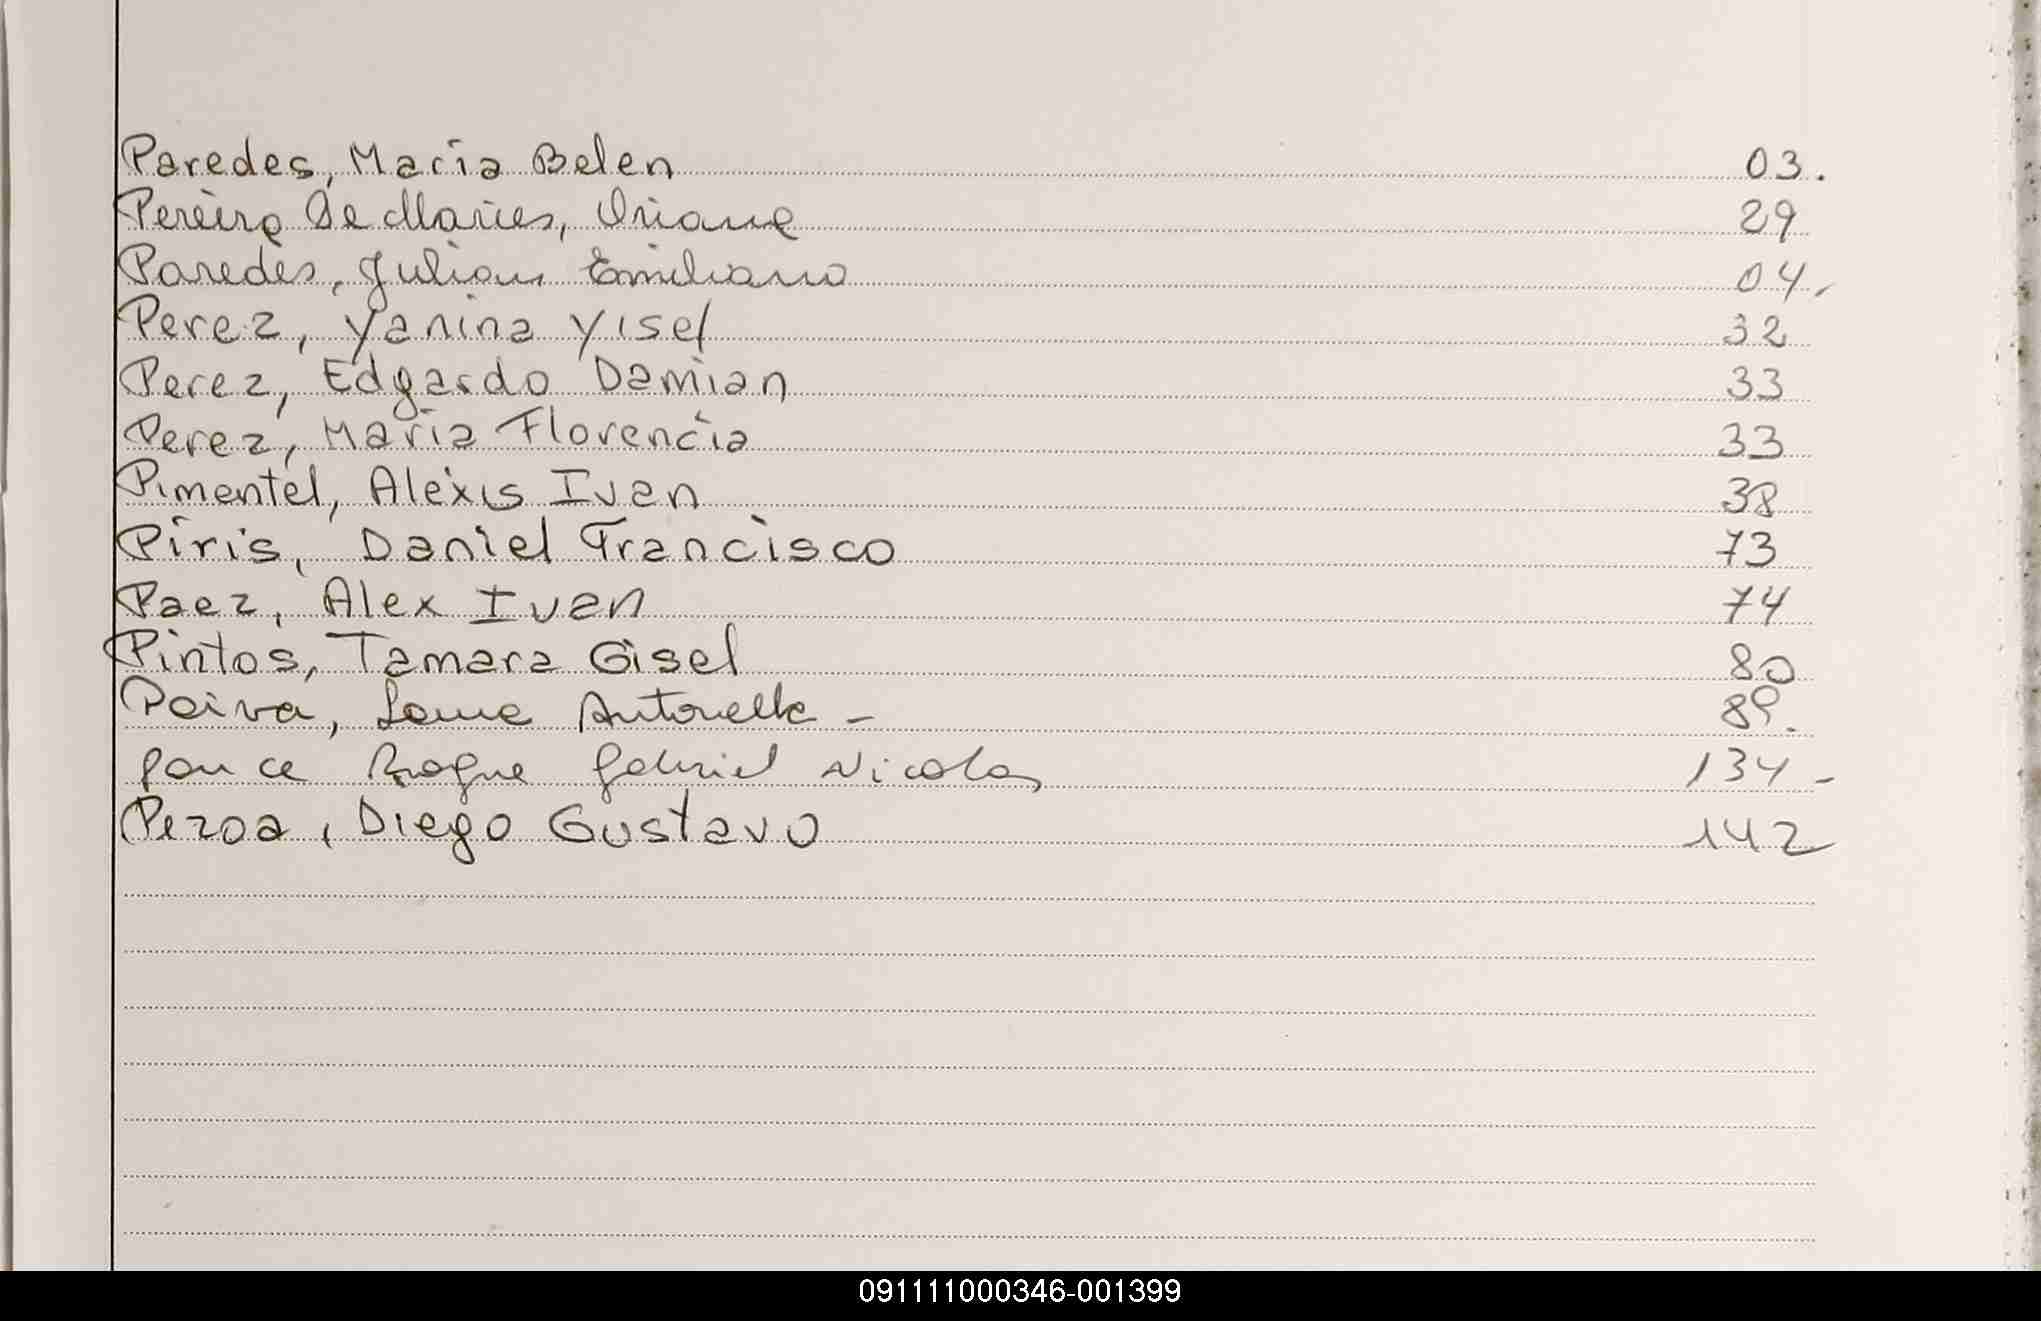 Paredes, Maria Belen 03.
Pereira De Maries, Oriana 29
Paredes, Julian Emiliano 04.
Perez, Yanina Yisel 32
Perez, Edgardo Damian 33
Perez, Maria Florencia 33
Pimentel, Alexis Ivan 38
Piris, Daniel Francisco 73
Paez, Alex Ivan 74
Pintos, Tamara Gisel 80
Paiva, Antonella - 89.
Ponce Roque Gabriel Nicolas 134-
Pezoa, Diego Gustavo 142
091111000346-001399